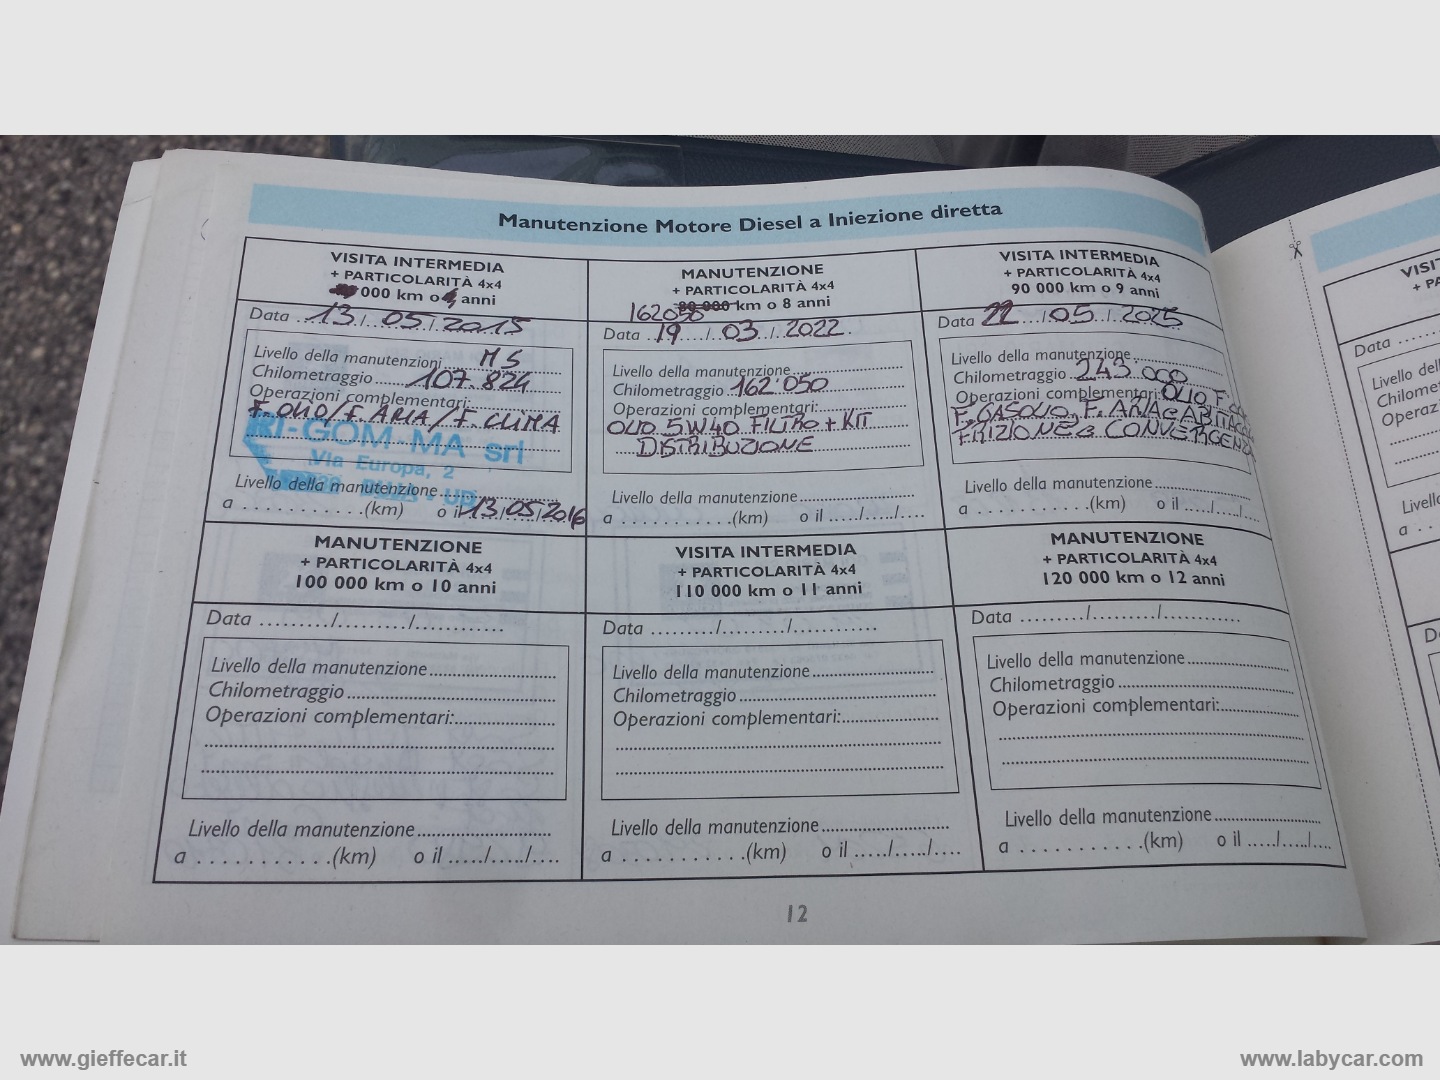 Manutenzione Motore Diesel a Iniezione diretta
VISITA INTERMEDIA
+ PARTICOLARITÀ 4x4
000 km o anni
Data 13/05/2015
Livello della manutenzioni MS
Chilometraggio 107.824
Operazioni complementari:
F. OLIO/F. ARIA/F. CLIMA
RI-GOM-MA srl
Via Europa, 2
UD
Livello della manutenzione
a ...........(km) o il 13/05/2016
MANUTENZIONE
+ PARTICOLARITÀ 4x4
162050 80 000 km o 8 anni
Data 19/03/2022
Livello della manutenzione
Chilometraggio 162.050
Operazioni complementari:
OLIO 5W40 FILTRO + KIT
DISTRIBUZIONE
Livello della manutenzione
a ...........(km) o il ...../...../....
VISITA INTERMEDIA
+ PARTICOLARITÀ 4x4
90 000 km o 9 anni
Data 22/05/2025
Livello della manutenzione
Chilometraggio 243.000
Operazioni complementari: OLIO, F.
F. GASOLIO, F. ARIA e ABITACOLO
FRIZIONE e CONVERGENZA
Livello della manutenzione
a ...........(km) o il ...../...../....
MANUTENZIONE
+ PARTICOLARITÀ 4x4
100 000 km o 10 anni
Data ........./........../............
Livello della manutenzione
Chilometraggio
Operazioni complementari:
Livello della manutenzione
a ...........(km) o il ...../...../....
VISITA INTERMEDIA
+ PARTICOLARITÀ 4x4
110 000 km o 11 anni
Data ........./........../............
Livello della manutenzione
Chilometraggio
Operazioni complementari:
Livello della manutenzione
a ...........(km) o il ...../...../....
MANUTENZIONE
+ PARTICOLARITÀ 4x4
120 000 km o 12 anni
Data ........./........../............
Livello della manutenzione
Chilometraggio
Operazioni complementari:
Livello della manutenzione
a ...........(km) o il ...../...../....
12
Data
Livello
a
www.gieffecar.it
www.labycar.com